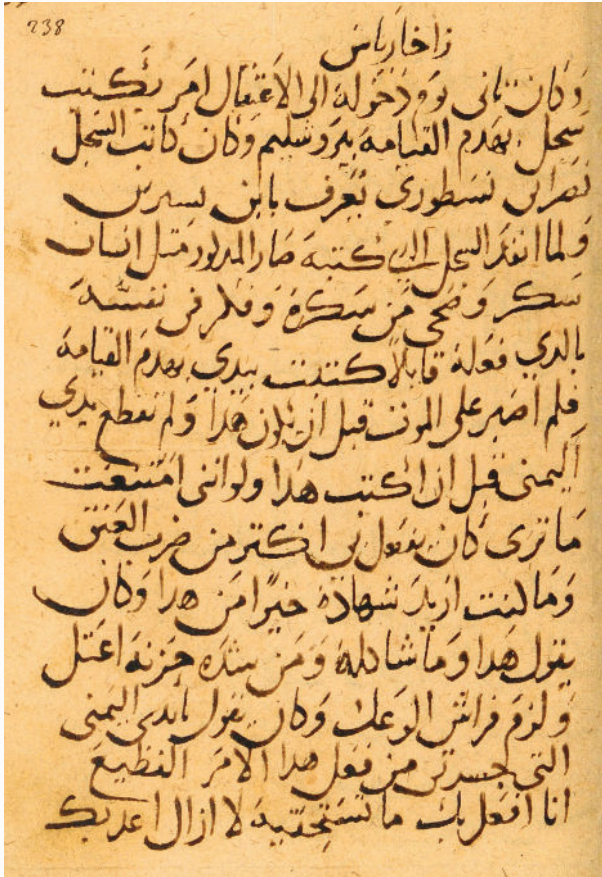 238
زاخارياس
وكان تاني يوم دخوله الى الاعتقال امر بكتب
سجل بهدم القيامه بيروشليم وكان كاتب السجل
نصراني نسطوري يعرف بابن
ولما انفذ السجل الدي كتبه صار المدكور متل انسان
سكر وضحي من سكره وفكر في نفسه
بالدي فعله قايلا كتبت بيدي بهدم القيامه
فلم اصبر على الموت قبل ان يكون هدا ولم تقطع يدي
اليمنى قبل ان اكتب هدا ولو اننى امتنعت
ما ترى كان يفعل بي اكتر من ضرب العنق
وما كنت اريد شهاده خيرا من هدا وكان
يقول هدا وما شاكله ومن شده حزنه اعتل
ولزم فراش الوعك وكان يقول يا يدي اليمنى
التي جسرتي من فعل هدا الامر الفظيع
انا افعل بك ما تستحقيه لا ازال اعدبك